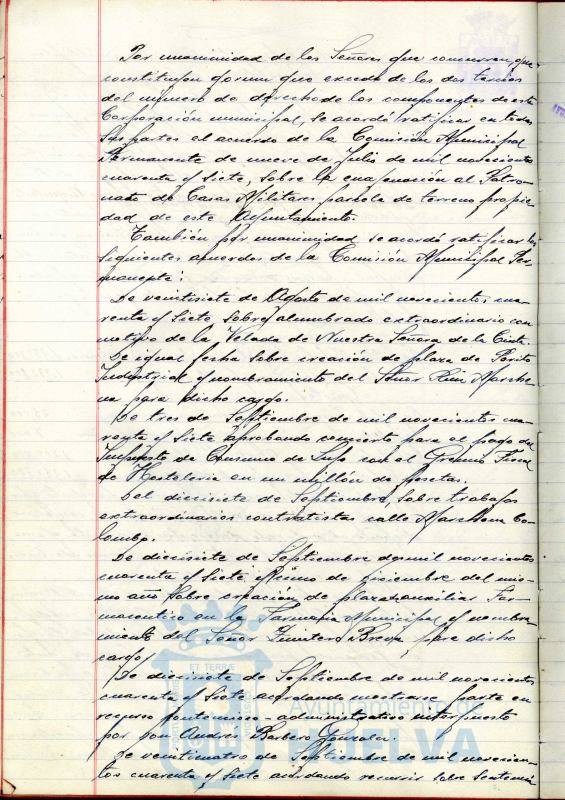 Por unanimidad de los Señores que concurren, que
constituyen quorum que excede de los dos tercios
del número de derecho de los componentes de esta
Corporación municipal, se acordó ratificar en todas
sus partes el acuerdo de la Comisión Municipal
Permanente de nueve de Julio de mil novecientos
cuarenta y siete, sobre la enagenación al Patro-
nato de Casas Militares parcela de terreno propie-
dad de este Ayuntamiento.
También por unanimidad se acordó ratificar los
siguientes acuerdos de la Comisión Municipal Per-
manente:
De veintisiete de Agosto de mil novecientos cua-
renta y siete sobre alumbrado extraordinario con
motivo de la Velada de Nuestra Señora de la Cinta.
De igual fecha sobre creación de plaza de Perito
Industrial y nombramiento del Señor Ruiz Marche-
na para dicho cargo.
De tres de Septiembre de mil novecientos cua-
renta y siete aprobando concierto para el pago del
Impuesto de Consumo de Lujo con el Gremio Fiscal
de Hostelería en un millón de pesetas.
Del diecisiete de Septiembre, sobre trabajos
extraordinarios contratista calle Marchena Co-
lombo.
De diecisiete de Septiembre de mil novecientos
cuarenta y siete y de Diciembre del mis-
mo año sobre creación de plaza auxiliar Far-
maceutico en la Farmacia Municipal y nombra-
miento del Señor Breva para dicho
cargo.
De diecisiete de Septiembre de mil novecientos
cuarenta y siete acordando mostrarse parte en
recurso contencioso-administrativo interpuesto
por Don Andrés Barbero Gonzalez.
De veinticuatro de Septiembre de mil novecien-
tos cuarenta y siete acordando recurrir sobre Sentencia
ET TERRÆ
Ayuntamiento de
HUELVA